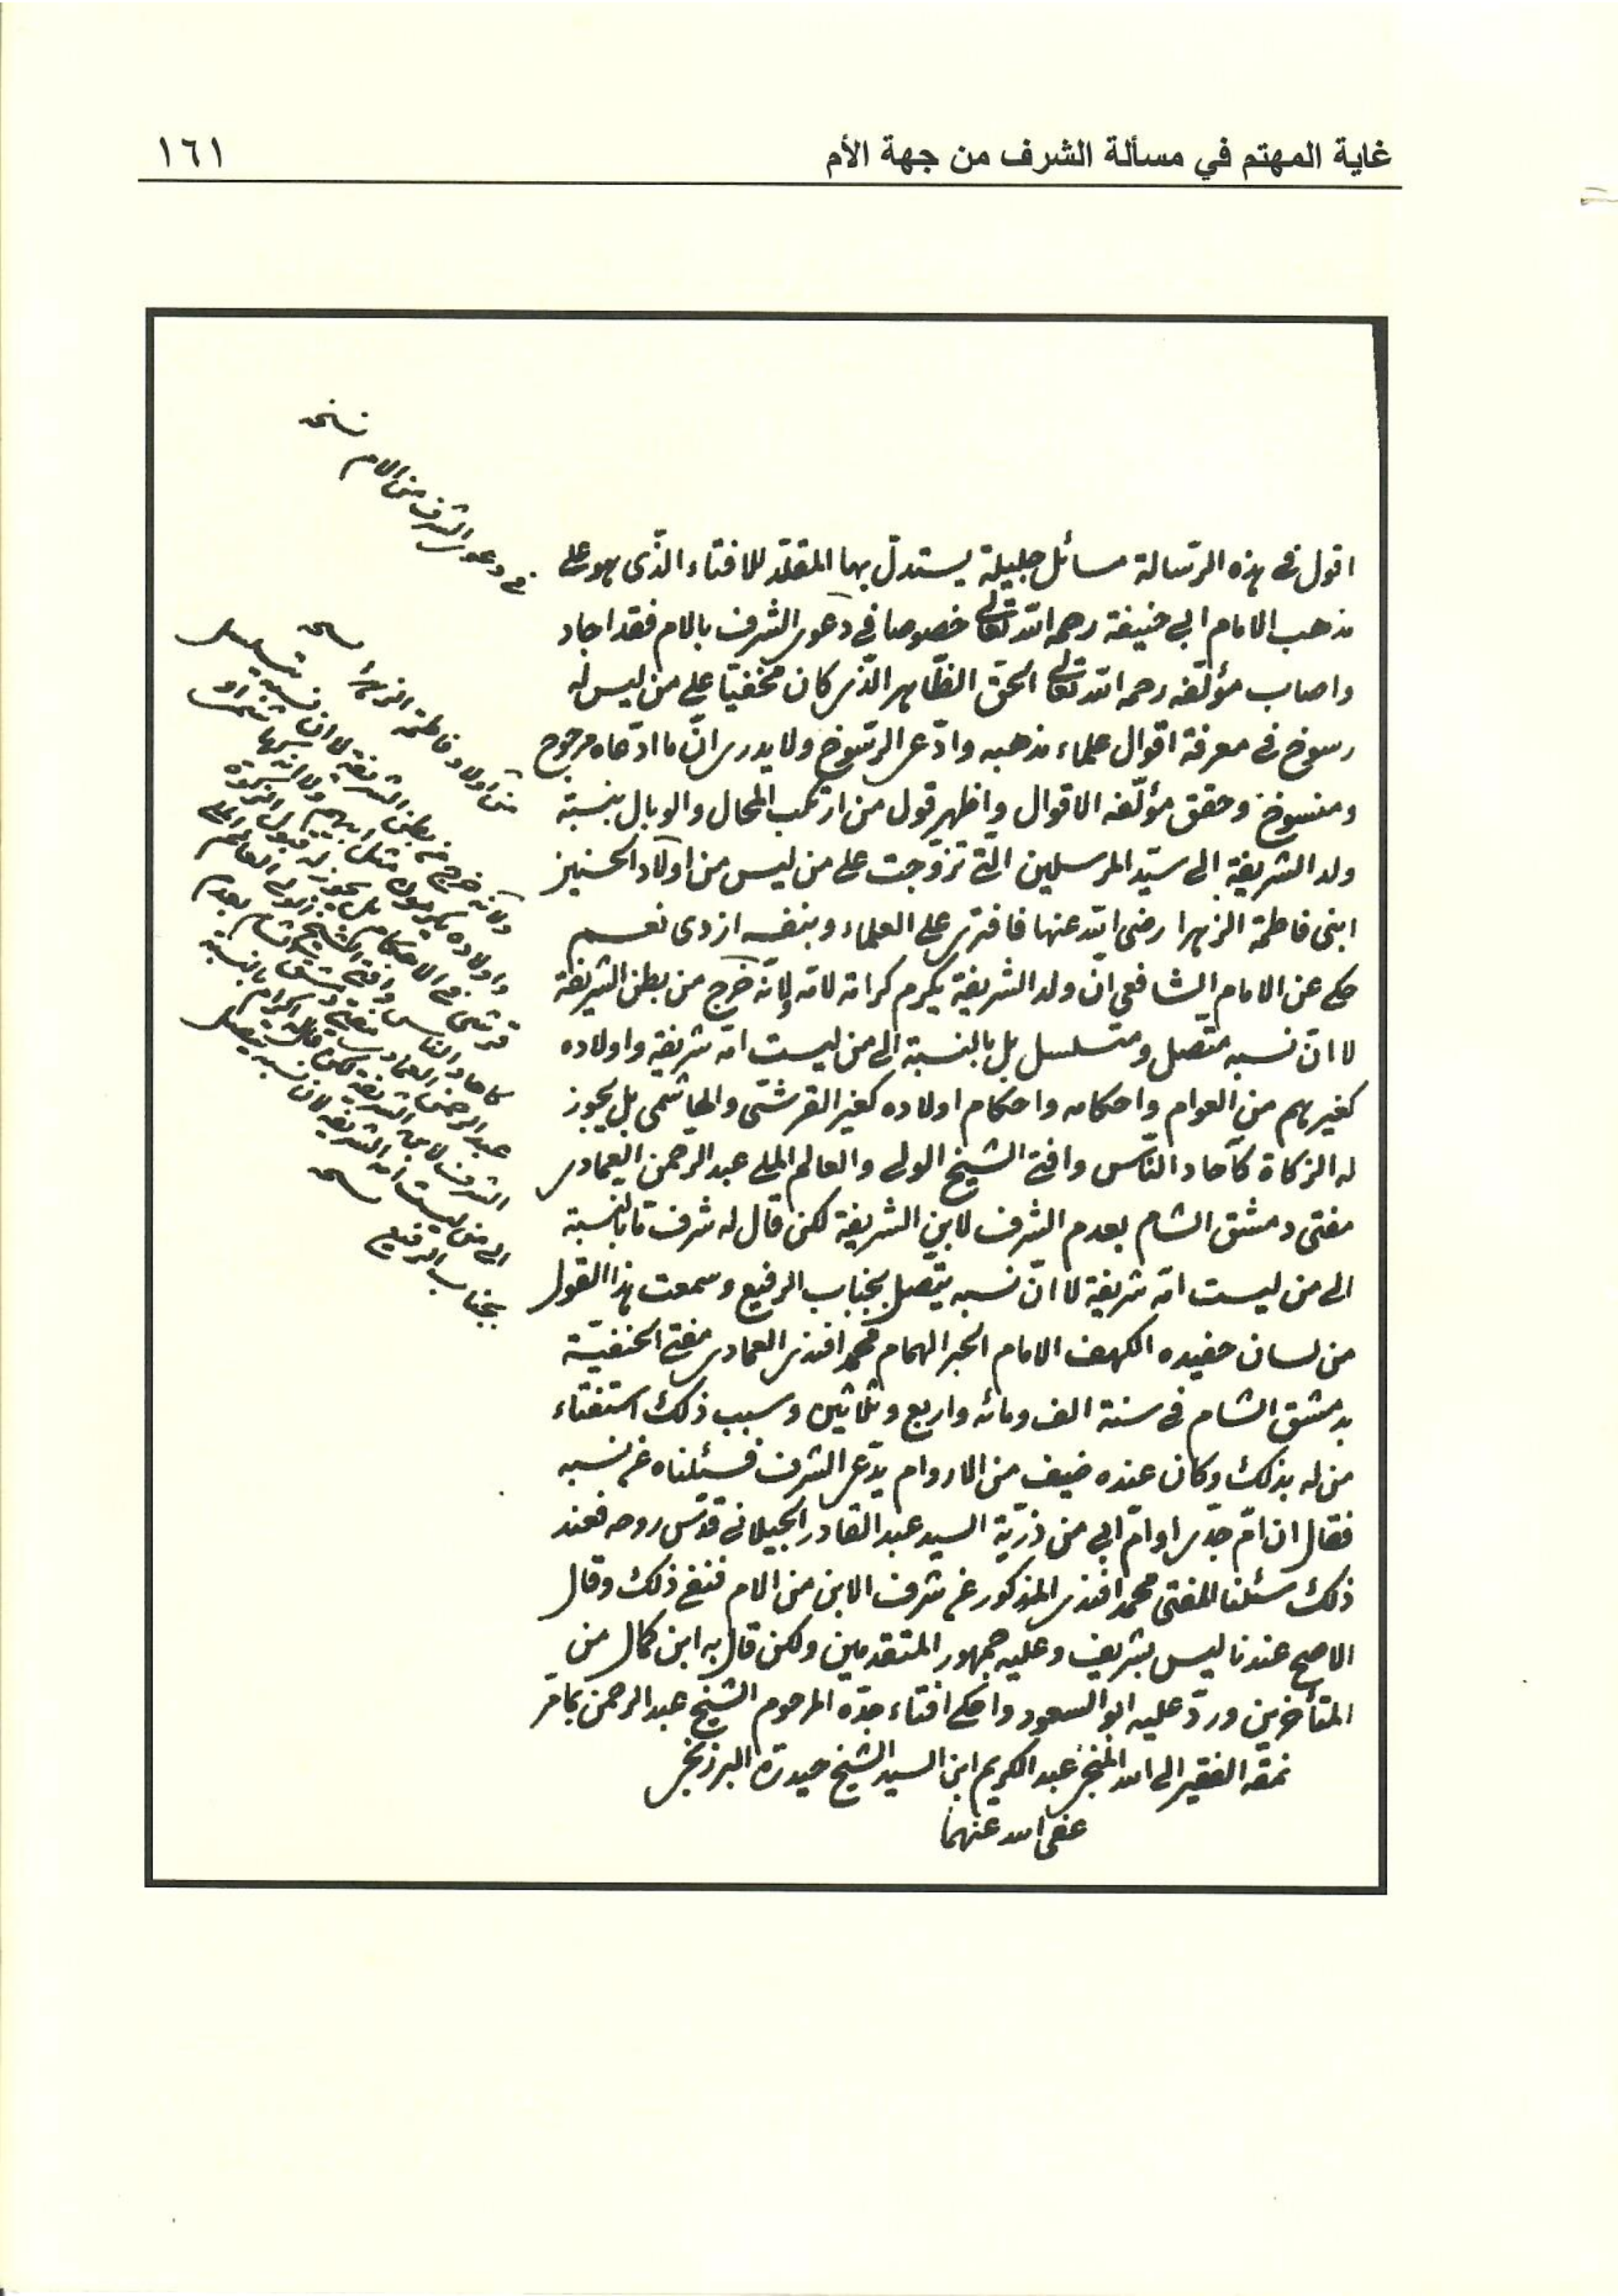 غاية المهتم في مسألة الشرف من جهة الأم
١٦١
اقول في هذه الرسالة مسائل جليلة يستدل بها المقلد للافتاء الذى هو على
مذهب الامام ابي حنيفة رحمه الله تعالى خصوصا في دعوى الشرف بالام فقد اجاد
واصاب مؤلفه رحمه الله تعالى الحق الظاهر الذى كان مخفيا على من ليس له
رسوخ في معرفة اقوال علماء مذهبه وادعى الرسوخ ولا يدرى ان ما ادعاه مرجوح
ومنسوخ وحقق مؤلفه الاقوال واظهر قول من ارتكب المحال والوبال بنسبة
ولد الشريفة الى سيد المرسلين التي تزوجت على من ليس من اولاد الحسنين
ابنى فاطمة الزهرا رضى الله عنها فافترى على العلماء وبنفسه ازدى نعم
حكى عن الامام الشافعي ان ولد الشريفة يكرم كرامة لامه لانه خرج من بطن الشريفة
لا ان نسبه متصل ومتسلسل بل بالنسبة الى من ليست امه شريفة واولاده
كغيرهم من العوام واحكامه واحكام اولاده كغير القرشى والهاشمى بل يجوز
له الزكاة كآحاد الناس وافتى الشيخ الولى والعالم الملى عبد الرحمن العمادى
مفتى دمشق الشام بعدم الشرف لابن الشريفة لكن قال له شرف ما بالنسبة
الى من ليست امه شريفة لا ان نسبه يتصل بجناب الرفيع وسمعت هذا القول
من لسان حفيده الكهف الامام الحبر الهمام محمد افندى العمادى مفتى الحنفية
بدمشق الشام في سنة الف ومائه واربع وثلاثين وسبب ذلك استفتاء
من له بذلك وكان عنده ضيف من الاروام يدعى الشرف فسئلناه عن نسبه
فقال ان ام جدى او ام ابي من ذرية السيد عبد القادر الجيلاني قدس روحه فعند
ذلك سئلنا المفتى محمد افندى المذكور عن شرف الابن من الام فنفى ذلك وقال
الاصح عندنا ليس بشريف وعليه جمهور المتقدمين ولكن قال به ابن كمال من
المتأخرين ورد عليه ابو السعود واحكى افتاء جده المرحوم الشيخ عبد الرحمن بما مر
نمقه الفقير الى الله عبد الكريم ابن السيد الشيخ حيدرة البرزنجى
عفى الله عنهما
في دعوى الشرف من الام نسخه
من اولاد فاطمة الزهرا نسخه
عبد الرحمن العمادى
الى من ليست امه الشريفة لان نسبه يتصل
بجناب الرفيع نسخه